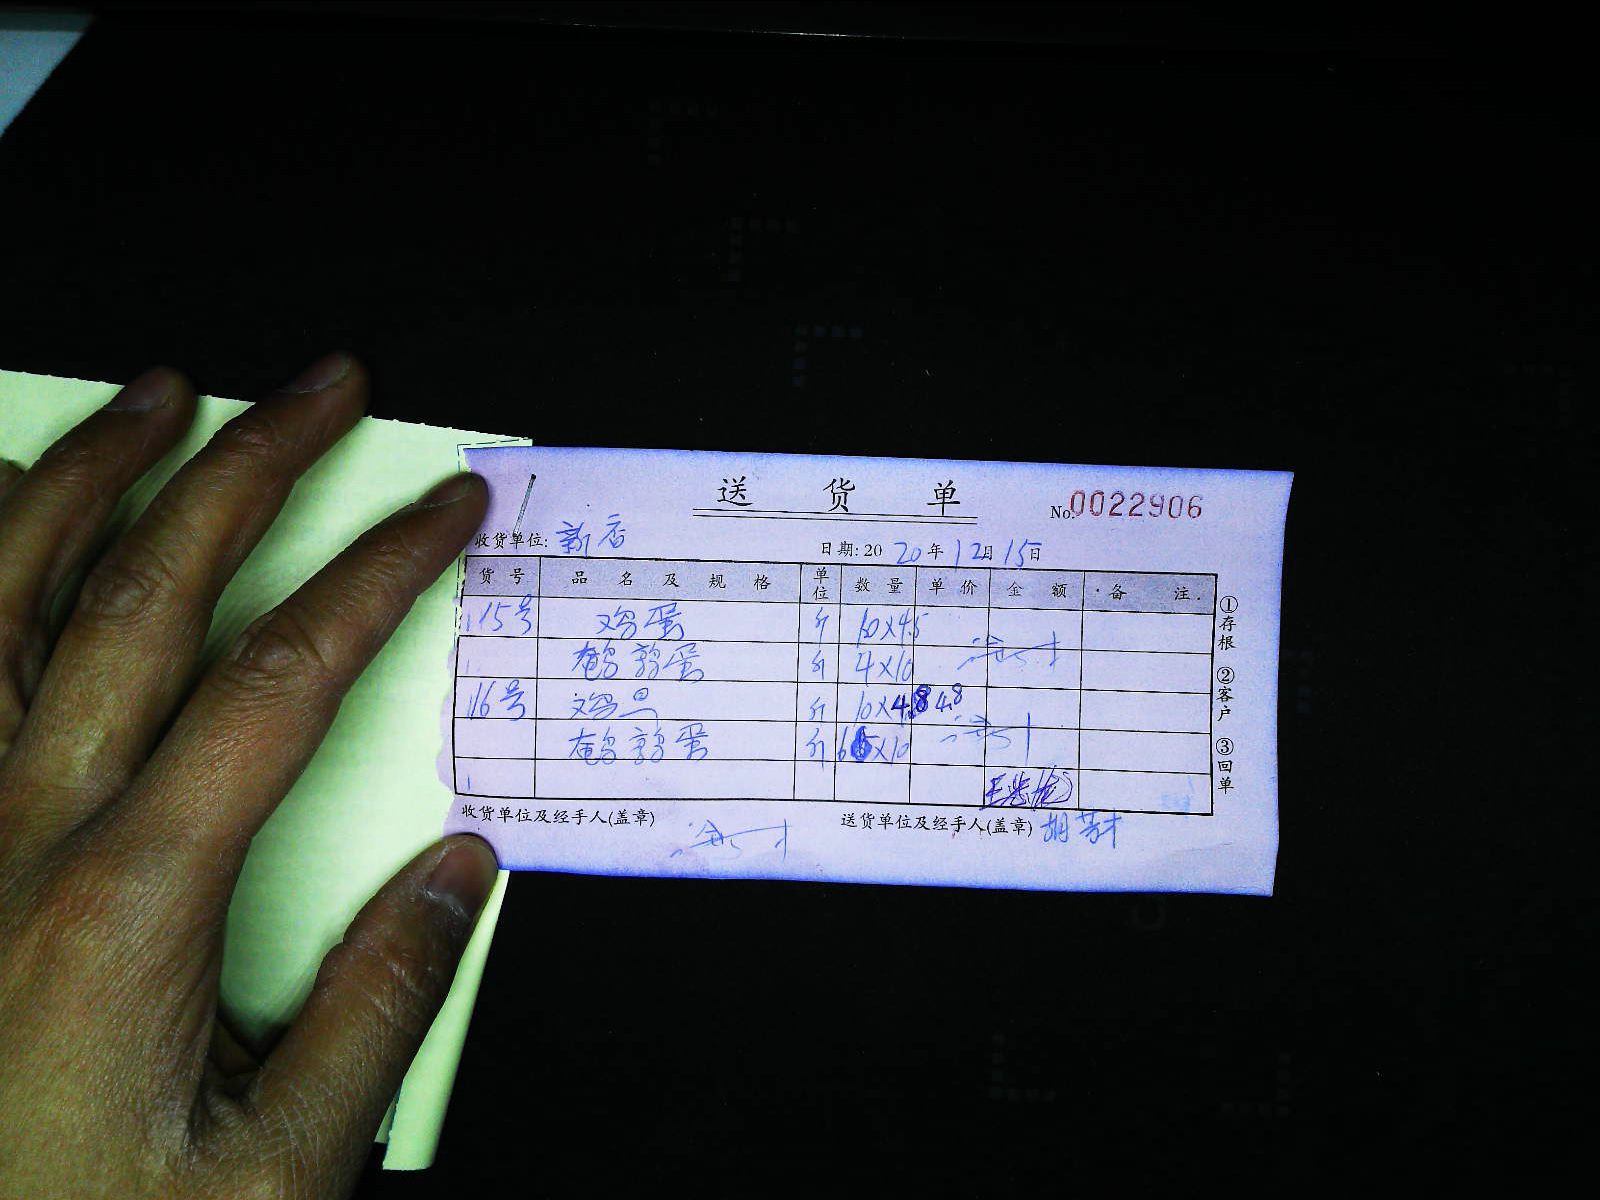 送货单
No.0022906
收货单位: 新香 日期: 2020年12月15日
货号 品名及规格 单位 数量 单价 金额 备注
15号 鸡蛋 斤 10×4.5
鹌鹑蛋 斤 4×10
16号 鸡旦 斤 10×4.8 4.8
鹌鹑蛋 斤 6×10
收货单位及经手人(盖章) 送货单位及经手人(盖章)
①存根 ②客户 ③回单